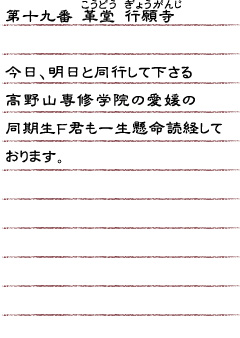 こうどう ぎょうがんじ
第十九番 革堂 行願寺
今日、明日と同行して下さる
高野山専修学院の愛媛の
同期生F君も一生懸命読経して
おります。